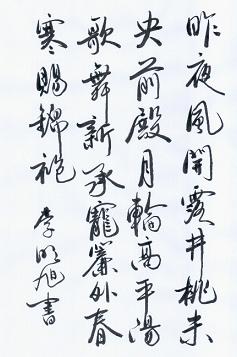 昨夜風開露井桃未
央前殿月輪高平陽
歌舞新承寵簾外春
寒賜錦袍 李明旭書